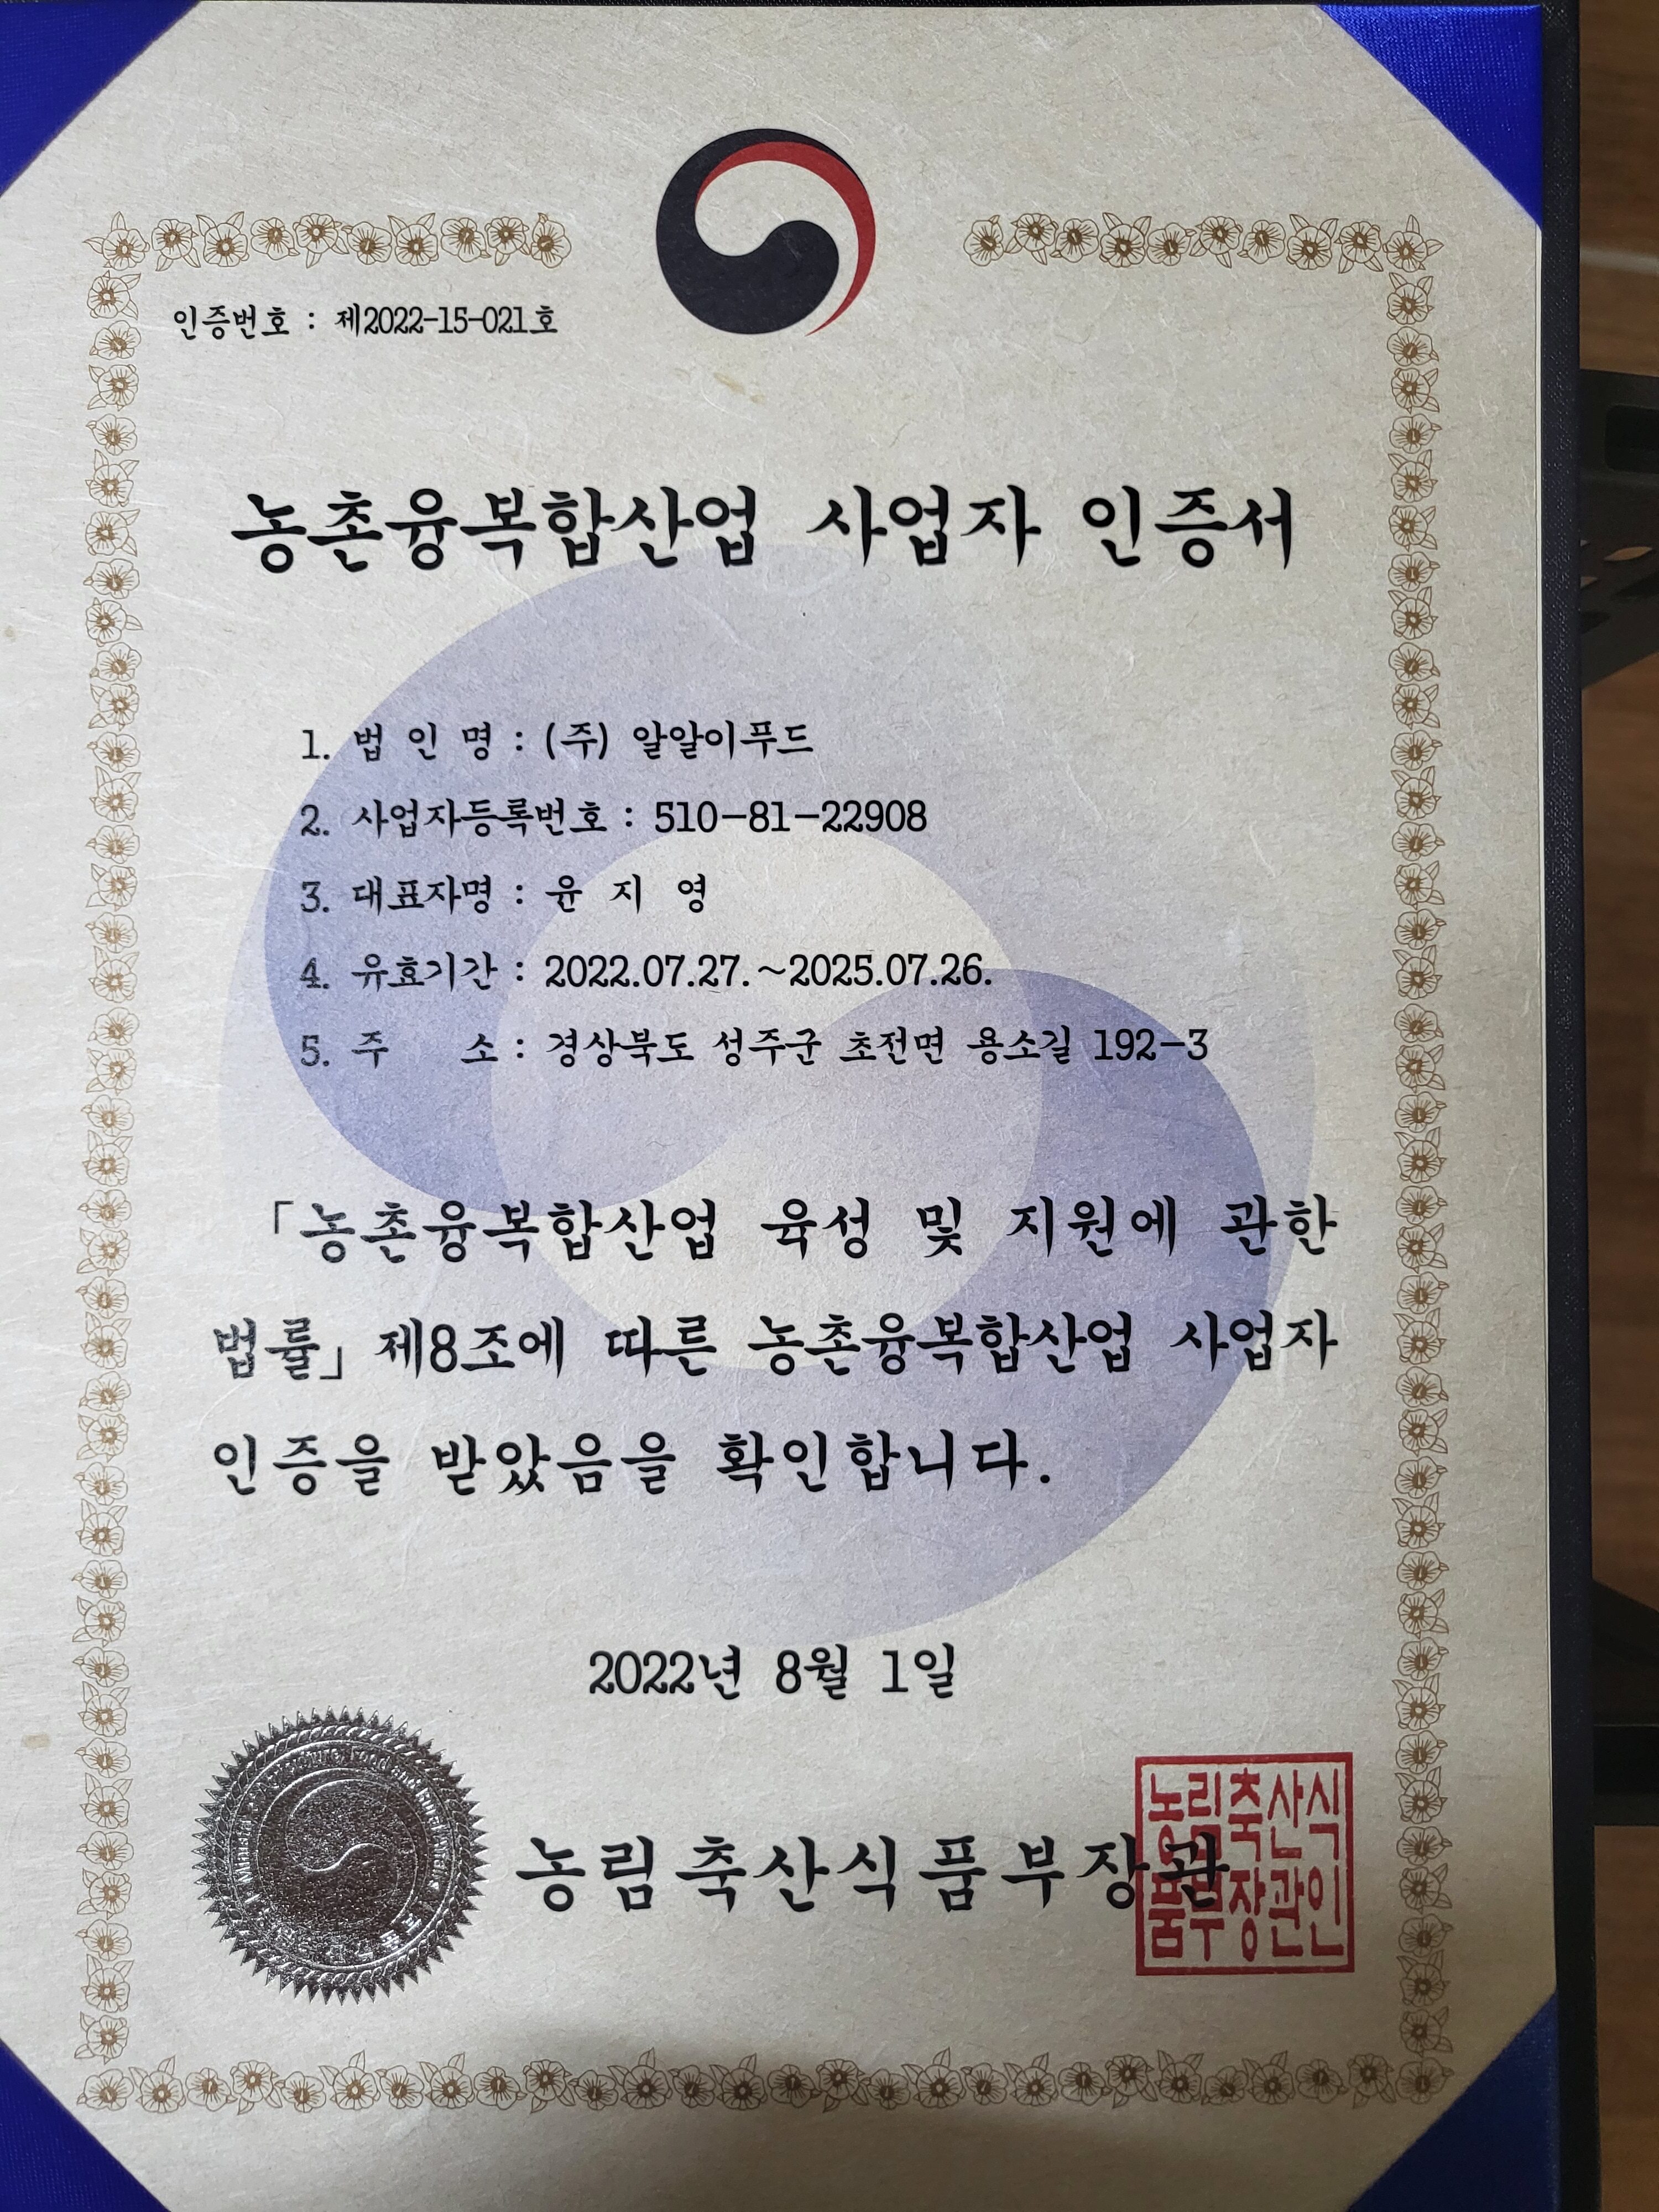 인증번호 : 제2022-15-021호
농촌융복합산업 사업자 인증서
1. 법 인 명 : (주) 알알이푸드
2. 사업자등록번호 : 510-81-22908
3. 대표자명 : 윤 지 영
4. 유효기간 : 2022.07.27.~2025.07.26.
5. 주 소 : 경상북도 성주군 초전면 용소길 192-3
「농촌융복합산업 육성 및 지원에 관한
법률」제8조에 따른 농촌융복합산업 사업자
인증을 받았음을 확인합니다.
2022년 8월 1일
농림축산식품부장관
농림축산식
품부장관인